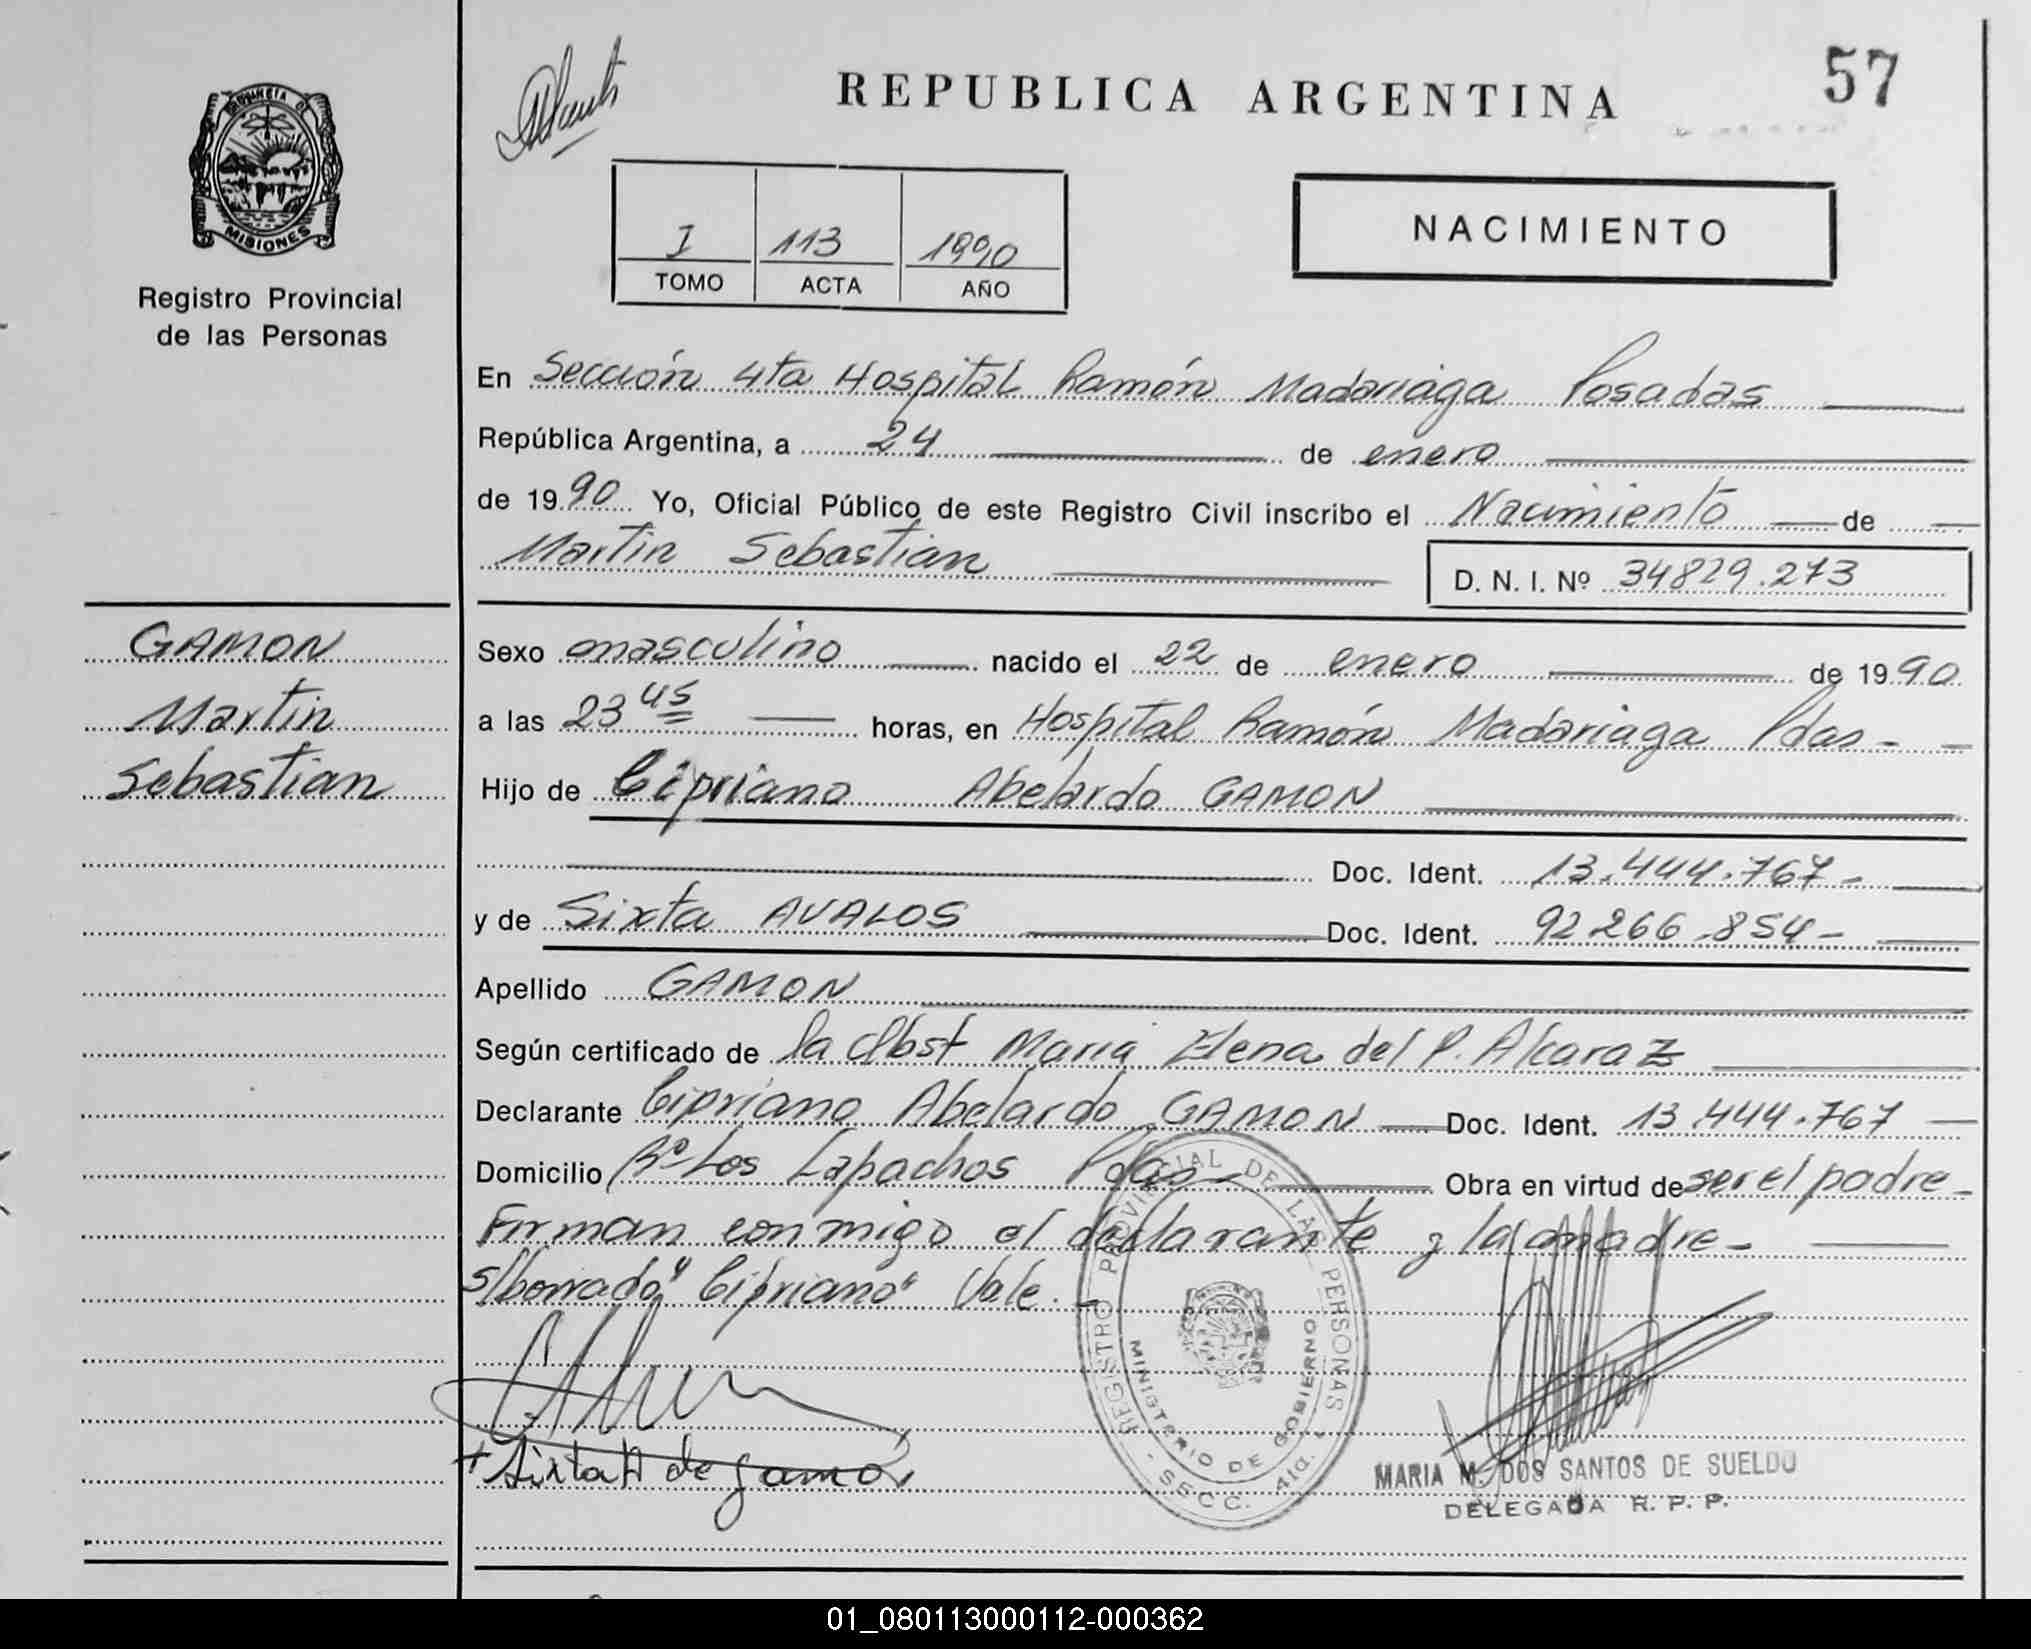 REPUBLICA ARGENTINA
57
PROVINCIA DE
MISIONES
Registro Provincial
de las Personas
I 113 1990
TOMO ACTA AÑO
NACIMIENTO
En Sección 4ta Hospital Ramón Madariaga Posadas
República Argentina, a 24 de enero
de 1990 Yo, Oficial Público de este Registro Civil inscribo el Nacimiento de
Martin Sebastian
D. N. I. Nº 34829.273
GAMON
Martin
Sebastian
Sexo masculino nacido el 22 de enero de 1990
a las 23 45 horas, en Hospital Ramón Madariaga Pdas-
Hijo de Cipriano Abelardo GAMON
Doc. Ident. 13.444.767-
y de Sixta AVALOS Doc. Ident. 92266.854-
Apellido GAMON
Según certificado de la Obst Maria Elena del P. Alcaraz
Declarante Cipriano Abelardo GAMON Doc. Ident. 13.444.767
Domicilio Bº Los Lapachos Pdas- Obra en virtud de ser el padre-
Firman conmigo el declarante y la madre-
S/borrado "Cipriano" Vale.
Sixta A de gamon
REGISTRO PROVINCIAL DE LAS PERSONAS
MINISTERIO DE GOBIERNO
- SECC. 4ta. -
MARIA M. DOS SANTOS DE SUELDO
DELEGADA R. P. P.
01_080113000112-000362